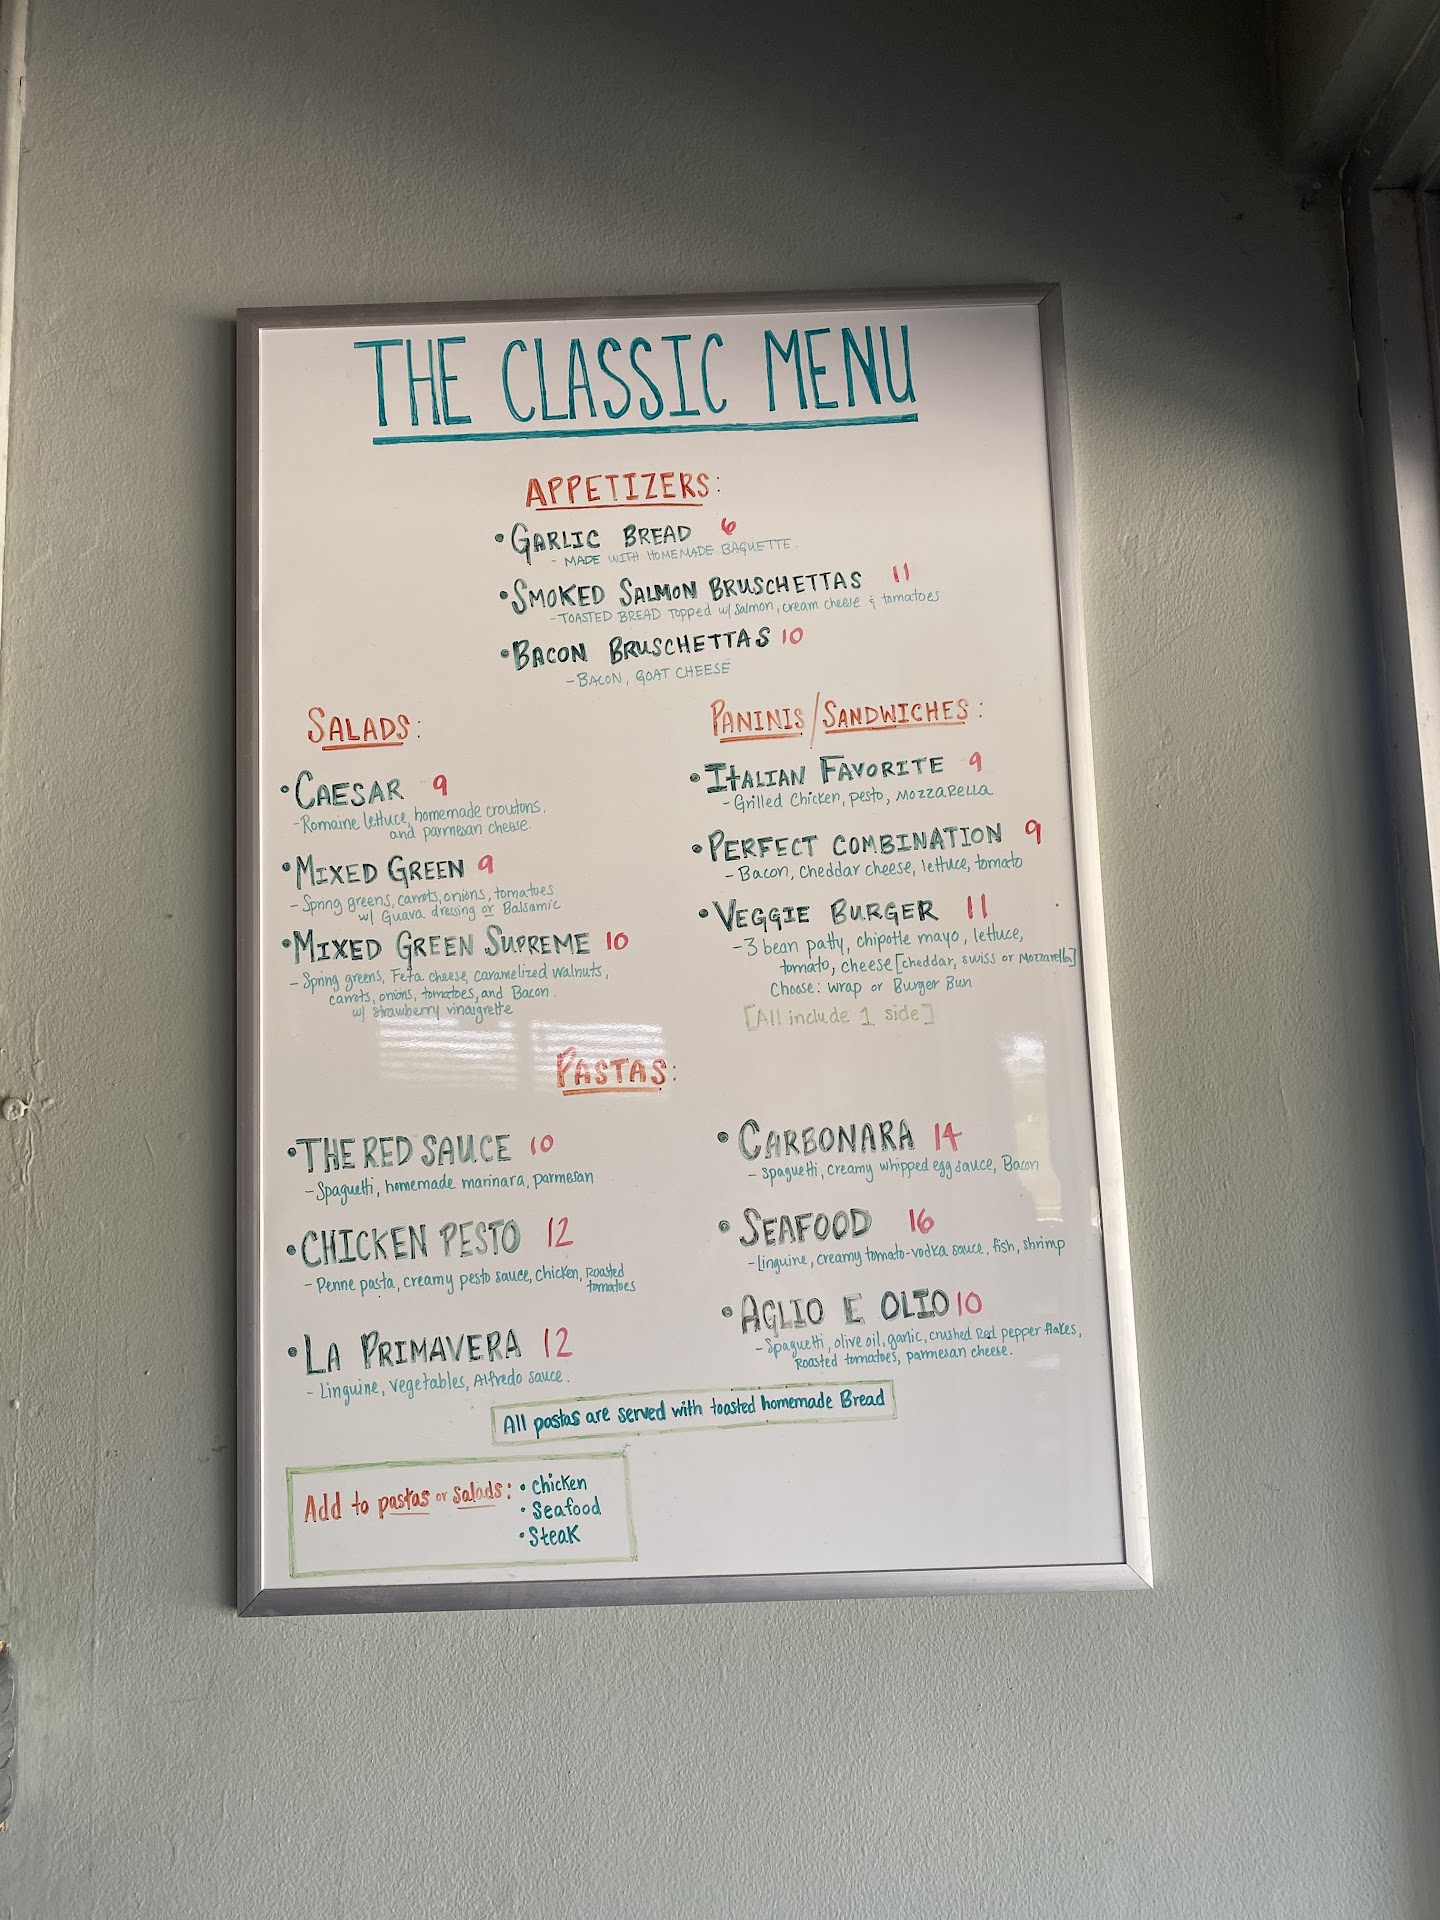 THE CLASSIC MENU
APPETIZERS:
• GARLIC BREAD 6
- MADE WITH HOMEMADE BAGUETTE.
• SMOKED SALMON BRUSCHETTAS 11
- TOASTED BREAD Topped w/ salmon, cream cheese & tomatoes
• BACON BRUSCHETTAS 10
- BACON, GOAT CHEESE
SALADS:
• CAESAR 9
- Romaine lettuce, homemade croutons,
and parmesan cheese.
• MIXED GREEN 9
- Spring greens, carrots, onions, tomatoes
w/ Guava dressing or Balsamic
• MIXED GREEN SUPREME 10
- Spring greens, Feta cheese, caramelized walnuts,
carrots, onions, tomatoes, and Bacon.
w/ strawberry vinaigrette
PANINIS/SANDWICHES:
• ITALIAN FAVORITE 9
- Grilled Chicken, pesto, MOZZARELLA
• PERFECT COMBINATION 9
- Bacon, cheddar cheese, lettuce, tomato
• VEGGIE BURGER 11
- 3 bean patty, chipotle mayo, lettuce,
tomato, cheese [cheddar, swiss or Mozzarella]
Choose: wrap or Burger Bun
[All include 1 side]
PASTAS:
• THE RED SAUCE 10
- Spaguetti, homemade marinara, parmesan
• CHICKEN PESTO 12
- Penne pasta, creamy pesto sauce, chicken, Roasted
tomatoes
• LA PRIMAVERA 12
- Linguine, vegetables, Alfredo sauce.
• CARBONARA 14
- spaguetti, creamy whipped egg sauce, Bacon
• SEAFOOD 16
- Linguine, creamy tomato-vodka sauce, fish, shrimp
• AGLIO E OLIO 10
- Spaguetti, olive oil, garlic, crushed Red pepper flakes,
Roasted tomatoes, parmesan cheese.
All pastas are served with toasted homemade Bread
Add to pastas or salads: • Chicken
• Seafood
• Steak